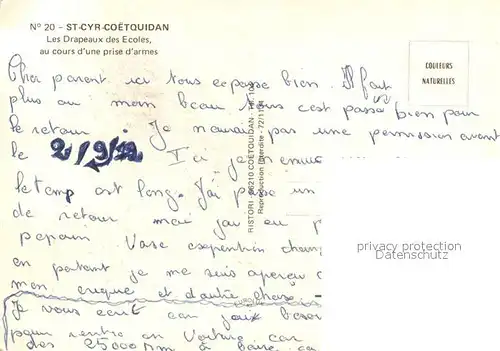 N° 20 - ST-CYR-COËTQUIDAN
Les Drapeaux des Ecoles,
au cours d'une prise d'armes
COULEURS
NATURELLES
Cher parent ici tous ce passe bien. Il fait
plus au moin beau tous c'est passé bien pour
le retour. Je n'aurai pas une permission avant
le 2/9/72. Ici je m'ennui
le temp est long. J'ai passé un
de retour mai j'ai eu
pepain
en partant je me suis aperçu
mon et d'autre chose
Je vous écrit car j'ai besoin
pour rentre en voiture car
des 25000 à
RISTORI - 56210 COETQUIDAN
Reproduction interdite - 72/1194
privacy protection
Datenschutz